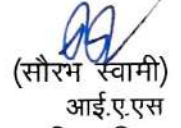 (सौरभ स्वामी)
आई.ए.एस